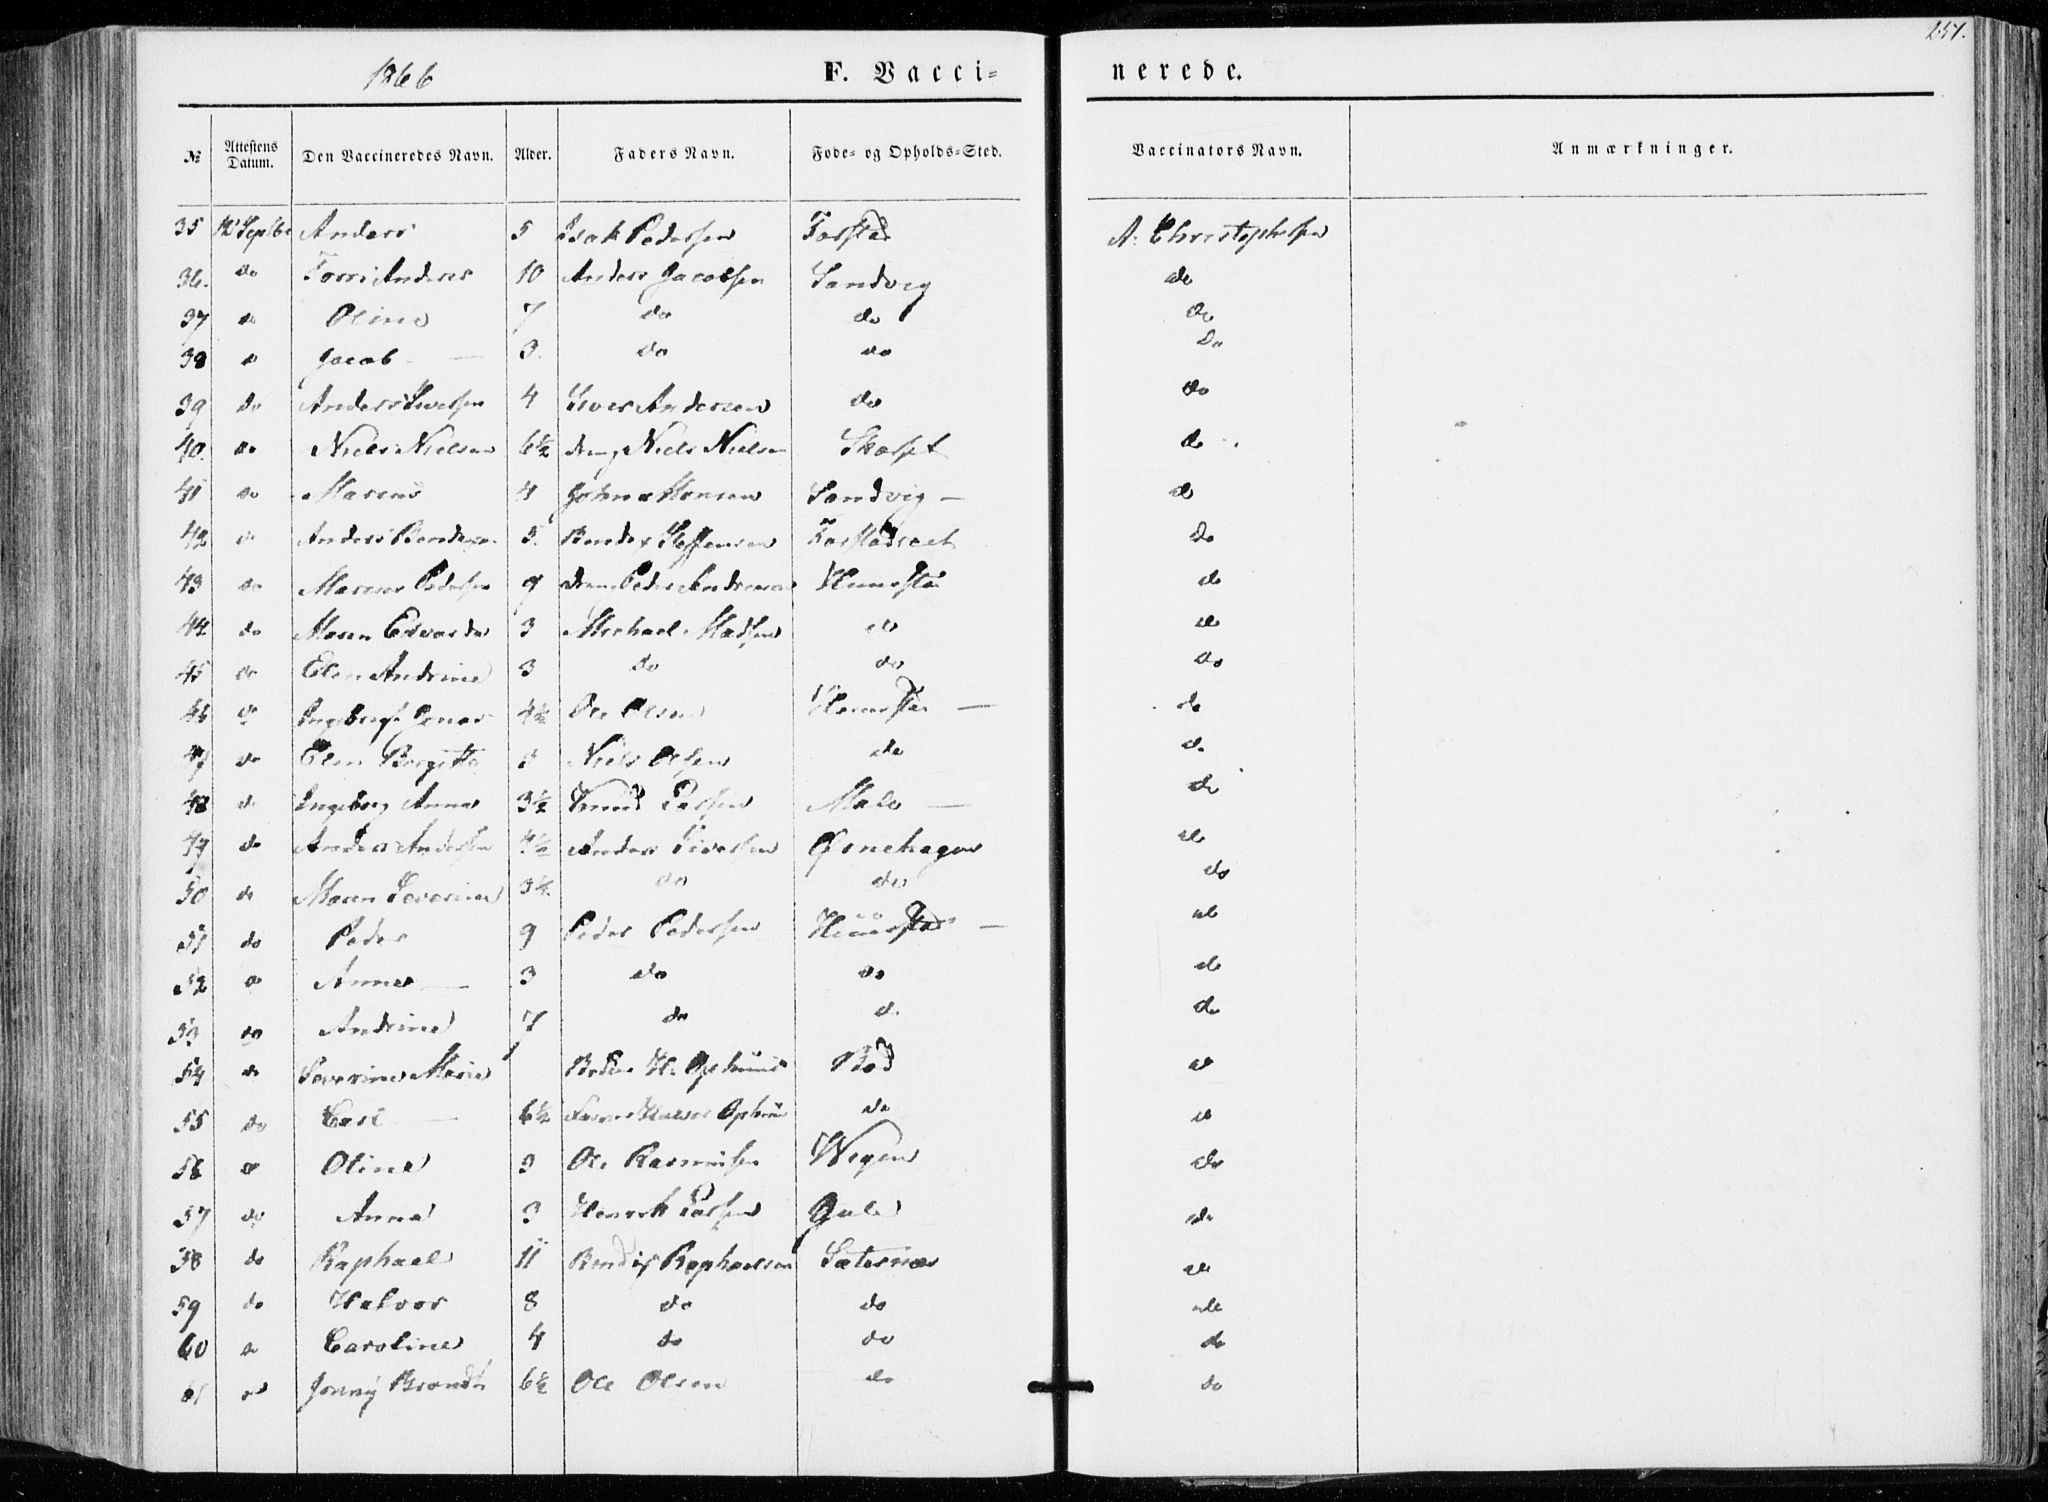 257.
1866 F. Vacci= nerede.
№ Attestens Datum. Den Vaccineredes Navn. Alder. Faders Navn. Føde- og Opholds-Sted. Vaccinators Navn. Anmærkninger.
35 Anders 5 Isak Pedersen Farstad A. Christophersen
36. do Anders 10 Anders Jacobsen Sandvig do
37 do Oline 7 do do do
38 do Jacob 3. do do do
39 do Anders Iversen 4 Iver Andersen do do
40. do Niels Nielsen 6½ Niels Nielsen do
41 do 4 John Monsen Sandvig do
42 do Anders Bendixen 5. Bendix Steffensen do
43 do Pedersen 9 Peder Andreasen do
44 do Maren 3 Michael Madsen do do
45 do Elen Andrine 3 do do do
46 do 4½ Ole Olsen do
47 do Elen Birgitta 3 Niels Olsen do do
48 do Ingeborg Anna 3½ Knud Male do
49 do Anders Andersen 4½ Anders Iversen Ørnehagen do
50 do Maren Severine 3½. do do do
51 do Peder 9 Peder Pedersen do
52 do Anna 3 do do do
53 do Andrine 7 do do do
54 do Severine Marie Bød do
55 do Carl 6½ do do
56 do Oline 3 Ole Rasmussen do
57 do Anna 3 Henrik Larsen do
58 do Raphael 11 Bendix Raphaelsen Sæternæs do
59 do Halvor 8 do do do
60 do Caroline 4 do do do
61 do Brandt 6½ Ole Olsen do do